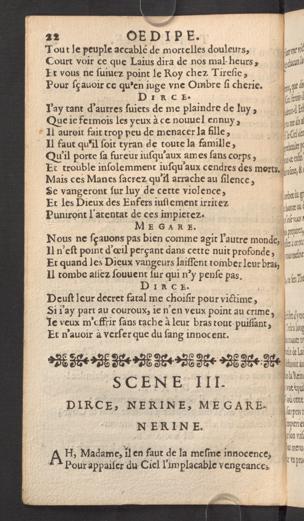 22 OEDIPE.
Tout le peuple accablé de mortelles douleurs,
Court voir ce que Laius dira de nos mal-heurs,
Et vous ne suiuez point le Roy chez Tiresie,
Pour sçauoir ce qu'en iuge vne Ombre si cherie.
DIRCE.
I'ay tant d'autres suiets de me plaindre de luy,
Que ie fermois les yeux à ce nouuel ennuy,
Il auroit fait trop peu de menacer la fille,
Il faut qu'il soit tyran de toute la famille,
Qu'il porte sa fureur iusqu'aux ames sans corps,
Et trouble insolemment iusqu'aux cendres des morts.
Mais ces Manes sacrez qu'il arrache au silence,
Se vangeront sur luy de cette violence,
Et les Dieux des Enfers iustement irritez
Puniront l'atentat de ces impietez.
MEGARE.
Nous ne sçauons pas bien comme agit l'autre monde,
Il n'est point d'œil perçant dans cette nuit profonde,
Et quand les Dieux vangeurs laissent tomber leur bras,
Il tombe assez souuent sur qui n'y pense pas.
DIRCE.
Deust leur decret fatal me choisir pour victime,
Si i'ay part au couroux, ie n'en veux point au crime,
Ie veux m'offrir sans tache à leur bras tout-puissant,
Et n'auoir à verser que du sang innocent.
SCENE III.
DIRCE, NERINE, MEGARE.
NERINE.
AH, Madame, il en faut de la mesme innocence,
Pour appaiser du Ciel l'implacable vengeance,